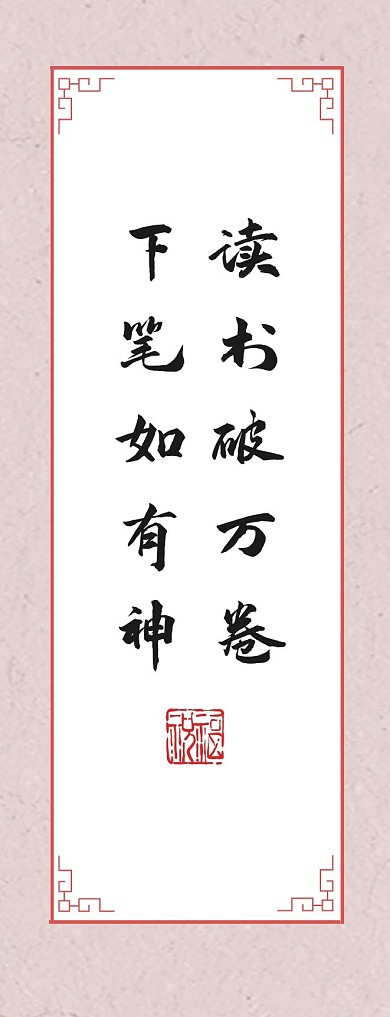 读书破万卷
下笔如有神
祝福